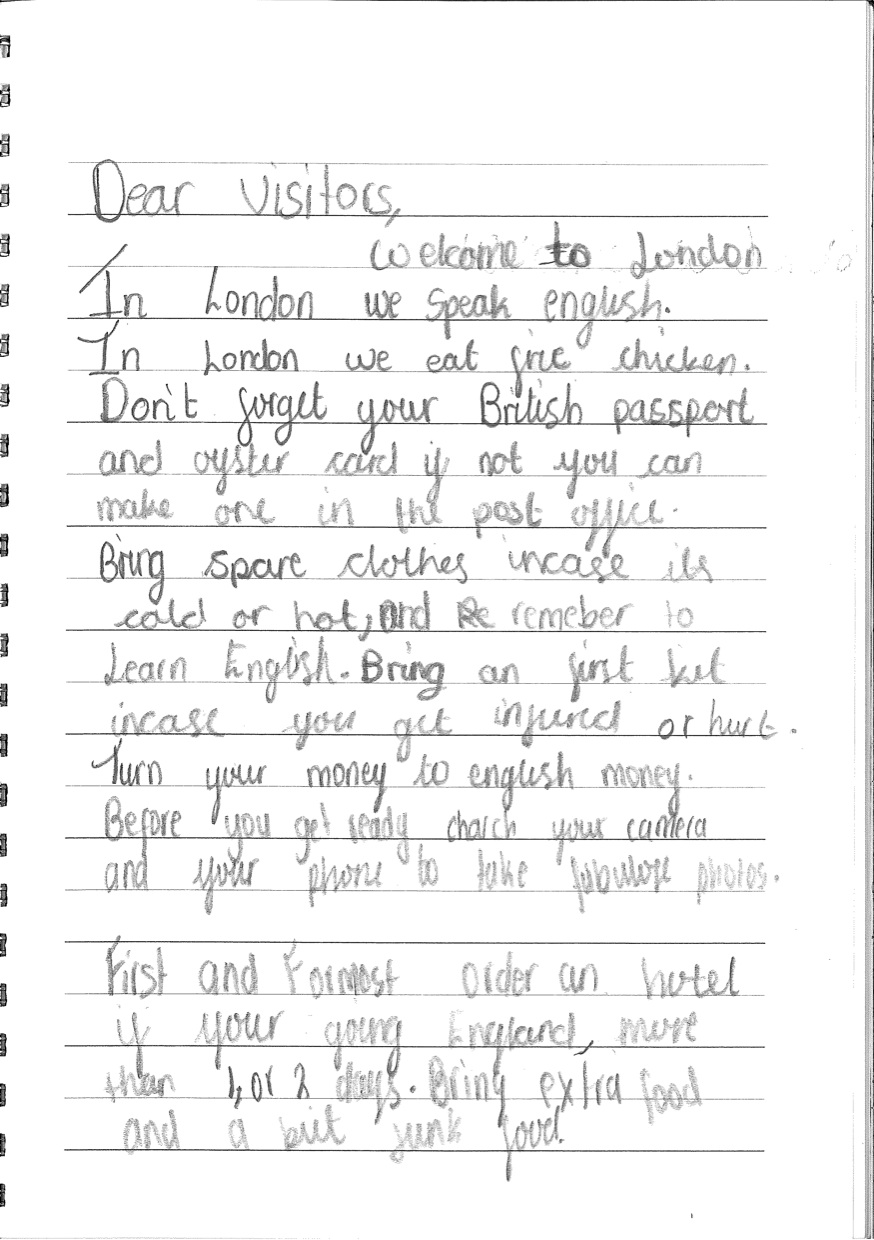 Dear visitors,
Welcome to London
In London we speak english.
In London we eat frie chicken.
Don't forget your British passport
and oyster card if not you can
make one in the post office.
Bring spare clothes incase its
cold or hot, and Re remeber to
Learn English. Bring an first kit
incase you get injured or hurt.
Turn your money to english money.
Before you get ready charch your camera
and your phone to take fabulose photos.
First and Formost order an hotel
if your going England, more
than 1, or 2 days. Bring extra food
and a bit junk food.